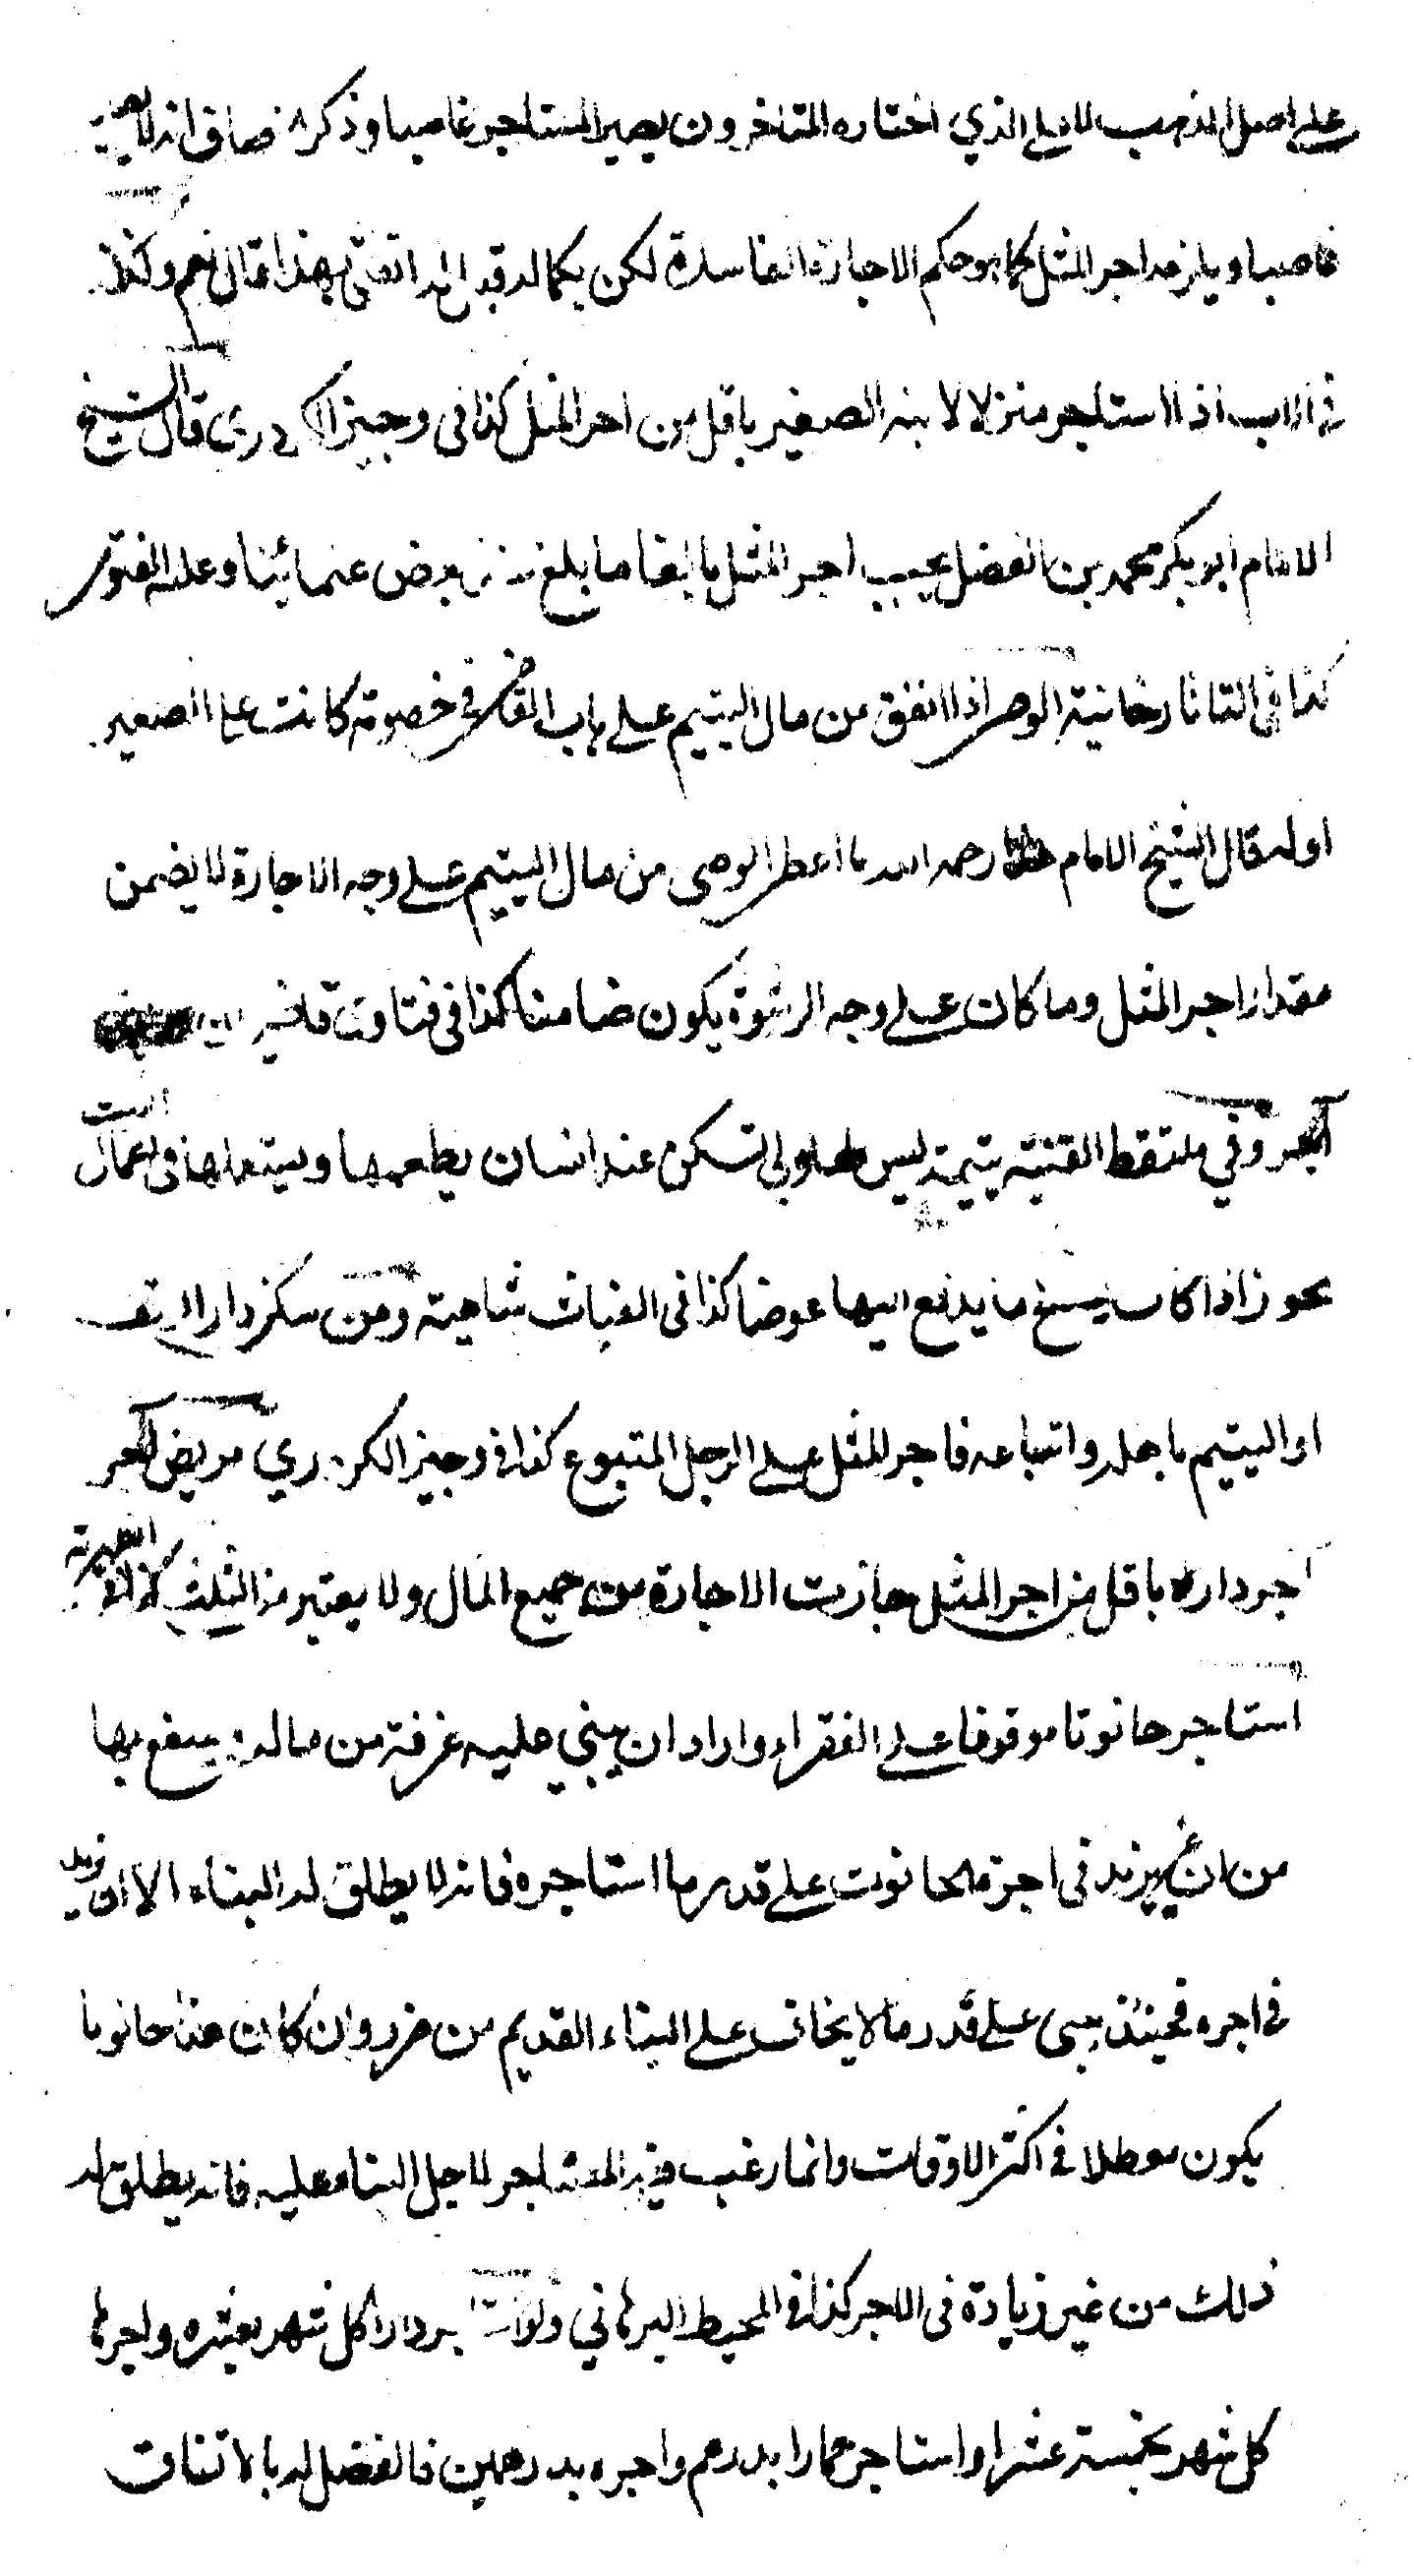 على اصل المذهب لا على الذي اختاره المتاخرون يصير المستاجر غاصبا وذكر خصاف انه لا يصير
غاصبا ويلزمه اجر المثل كما هو حكم الاجارة الفاسدة لكن بكماله قيل له اتفتي بهذا قال نعم وكذا
في الاب اذا استاجر منزلا لابنه الصغير باقل من اجر المثل كذا في وجيز الكردري قال الشيخ
الامام ابو بكر محمد بن الفضل يجب اجر المثل بالغا ما بلغ عند بعض علمائنا وعليه الفتوى
كذا في التاتارخانية الوصي اذا انفق من مال اليتيم على باب القاضي في خصومة كانت على الصغير
اوله قال الشيخ الامام رحمه الله ما اعطى الوصي من مال اليتيم على وجه الاجارة لا يضمن
مقدار اجر المثل وما كان على وجه الرشوة يكون ضامنا كذا في فتاوى قاضي
وفي ملتقط القنية يتيمة ليس لها ولي تسكن عند انسان يطعمها ويستعملها في اعمال البيت
يجوز اذا كان يسع ما يدفع اليها عوضا كذا في الغياث شاهية ومن سكن دار الوقف
او اليتيم باهله واتباعه فاجر المثل على الرجل المتبوع كذا في وجيز الكردري مريض آجر
آجر داره باقل من اجر المثل جازت الاجارة من جميع المال ولا يعتبر من الثلث كذا في الظهيرية
استاجر حانوتا موقوفا على الفقراء واراد ان يبني عليه غرفة من ماله وينتفع بها
من غير ان يزيد في اجرة الحانوت على قدر ما استاجره فانه لا يطلق له البناء الا ان يزيد
في اجره فحينئذ يبني على قدر ما لا يخاف على البناء القديم من ضرر وان كان هذا حانوتا
يكون معطلا في اكثر الاوقات وانما رغب فيه المستاجر لاجل البناء عليه فانه يطلق له
ذلك من غير زيادة في الاجر كذا في المحيط البرهاني ولو استاجر دارا كل شهر بعشرة واجرها
كل شهر بخمسة عشر او استاجر حمارا بدرهم واجره بدرهمين فالفضل له بالاتفاق